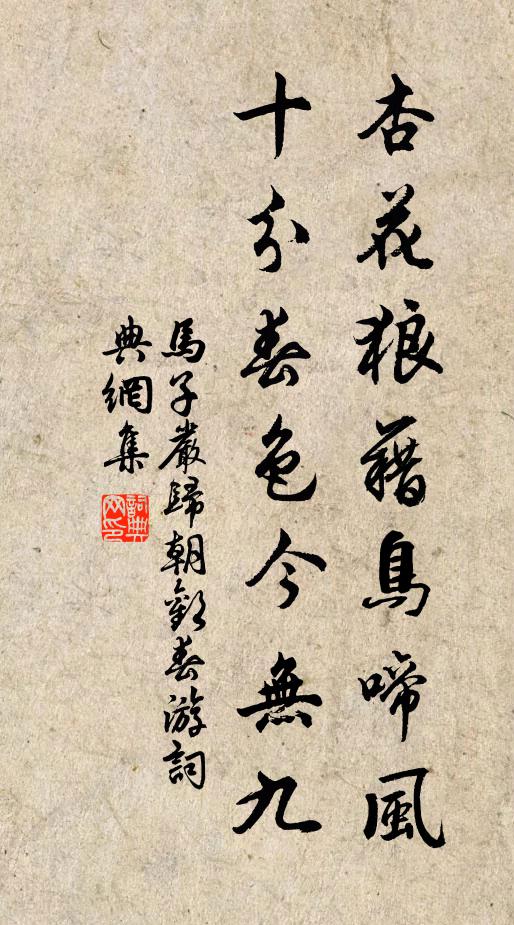 杏花狼藉鳥啼風
十分春色今無九
馬子嚴歸朝歡春游詞
典網集
詞典網印